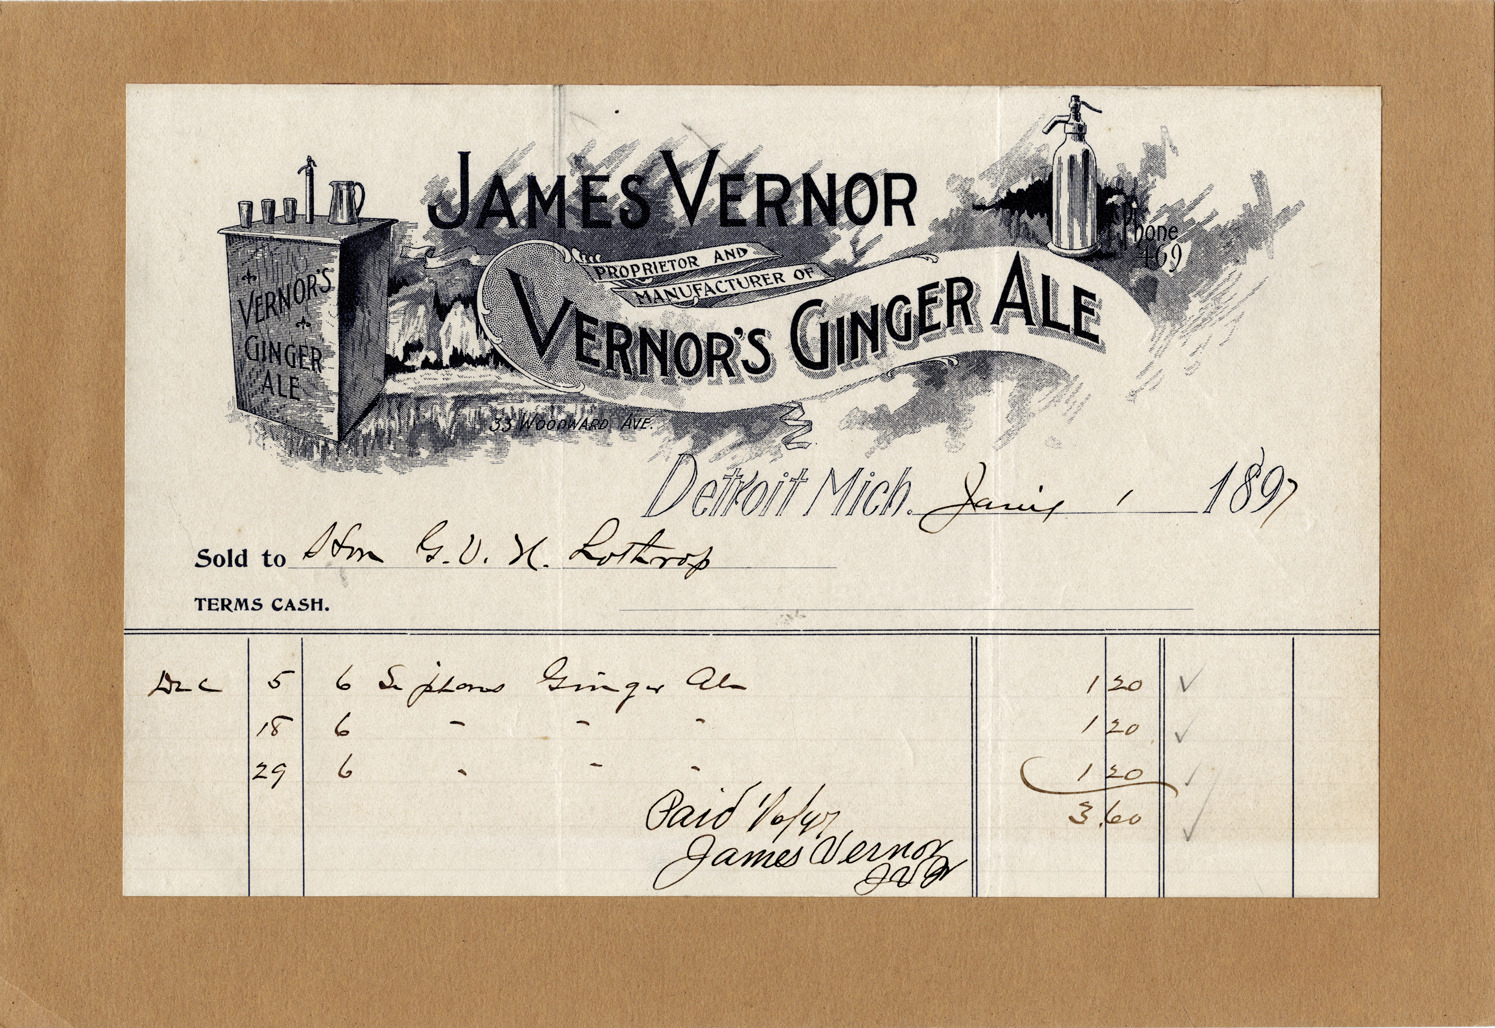 JAMES VERNOR
Phone
469
PROPRIETOR AND
MANUFACTURER OF
VERNOR'S GINGER ALE
VERNOR'S
GINGER
ALE
33 WOODWARD AVE.
Detroit Mich. 1 1897
Sold to Hon G. V. N. Lothrop
TERMS CASH.
Dec 5 6 Siphons Ginger Ale 1 20 ✓
18 6 " " " 1 20 ✓
29 6 " " " 1 20 ✓
3.60 ✓
Paid 1/6/97
James Vernor
JV Jr